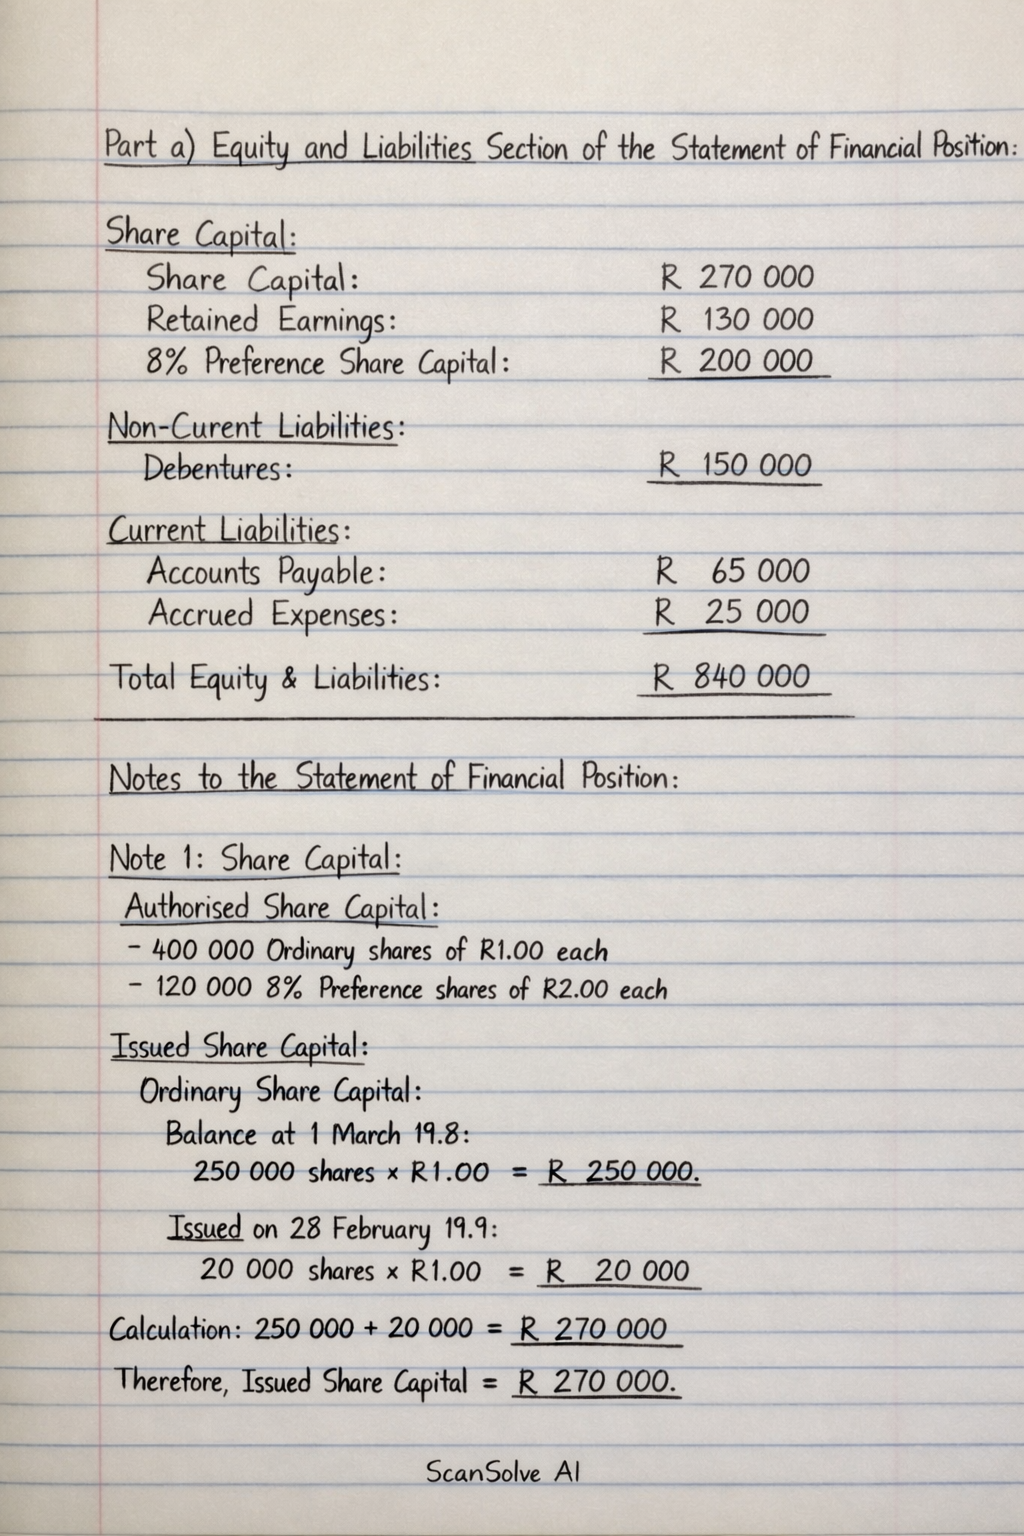 Part a) Equity and Liabilities Section of the Statement of Financial Position:
Share Capital:
Share Capital: R 270 000
Retained Earnings: R 130 000
8% Preference Share Capital: R 200 000
Non-Curent Liabilities:
Debentures: R 150 000
Current Liabilities:
Accounts Payable: R 65 000
Accrued Expenses: R 25 000
Total Equity & Liabilities: R 840 000
Notes to the Statement of Financial Position:
Note 1: Share Capital:
Authorised Share Capital:
- 400 000 Ordinary shares of R1.00 each
- 120 000 8% Preference shares of R2.00 each
Issued Share Capital:
Ordinary Share Capital:
Balance at 1 March 19.8:
250 000 shares × R1.00 = R 250 000.
Issued on 28 February 19.9:
20 000 shares × R1.00 = R 20 000
Calculation: 250 000 + 20 000 = R 270 000
Therefore, Issued Share Capital = R 270 000.
ScanSolve AI